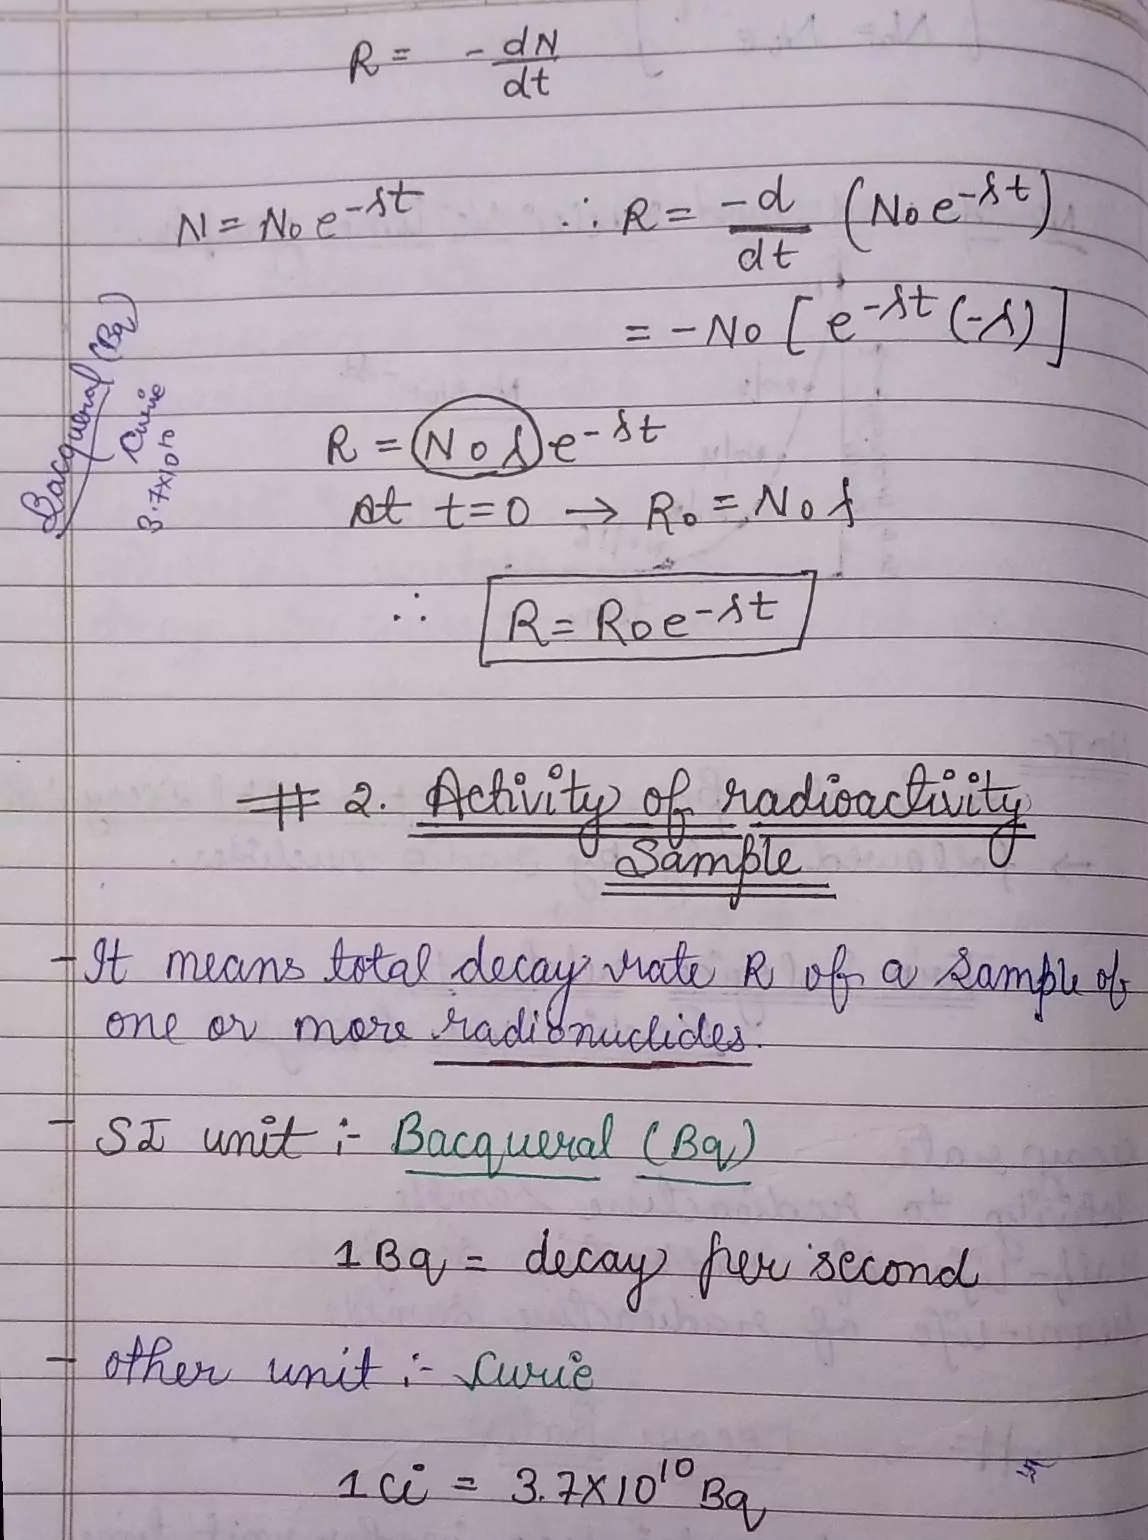 R = - dN/dt
N = N₀e^-λt ∴ R = -d/dt (N₀e^-λt)
= -N₀ [e^-λt (-λ)]
Bacqueral (Bq)
Curie
3.7x10¹⁰
R = N₀λ e^-λt
At t=0 → R₀ = N₀λ
∴ R = R₀e^-λt
# 2. Activity of radioactivity
Sample
- It means total decay rate R of a sample of
one or more radionuclides.
- SI unit :- Bacqueral (Bq)
1 Bq = decay per second
- other unit :- Curie
1 Ci = 3.7x10¹⁰ Bq